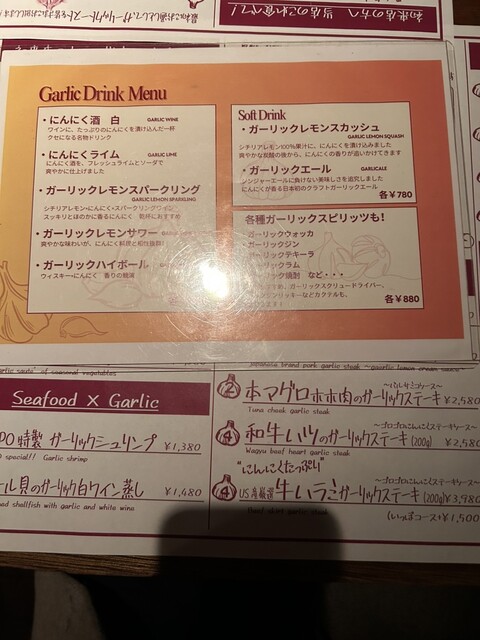 初来店の方へ
当店のこれ食べて!
Garlic Drink Menu
・にんにく酒 白 GARLIC WINE
ワインに、たっぷりのにんにくを漬け込んだ一杯
クセになる名物ドリンク
・にんにくライム GARLIC LIME
にんにく酒を、フレッシュライムとソーダで
爽やかに仕上げました
・ガーリックレモンスパークリング
GARLIC LEMON SPARKLING
シチリアレモン×にんにく×スパークリングワイン
スッキリとほのかに香るにんにく 乾杯におすすめ
・ガーリックレモンサワー
爽やかな味わいが、にんにく料理と相性抜群!
・ガーリックハイボール
ウィスキー×にんにく 香りの競演
Soft Drink
・ガーリックレモンスカッシュ
GARLIC LEMON SQUASH
シチリアレモン100%果汁に、にんにくを漬け込みました
爽やかな炭酸の後から、にんにくの香りが追いかけてきます
・ガーリックエール GARLIC ALE
ジンジャーエールに負けない美味しさを追究しました
にんにくが香る日本初のクラフトガーリックエール
各¥780
各種ガーリックスピリッツも!
ガーリックウォッカ
ガーリックジン
ガーリックテキーラ
ガーリックラム
ガーリック焼酎 など・・・
ガーリックスクリュードライバー、
ジンリッキーなどカクテルも。
各¥880
garlic saute" of seasonal vegetables
Japanese brand pork garlic steak
Seafood × Garlic
特製 ガーリックシュリンプ ¥1,380
special!! Garlic shrimp
ール貝のガーリック白ワイン蒸し ¥1,480
shellfish with garlic and white wine
② 本マグロホホ肉のガーリックステーキ ¥2,580
~バルサミコソース~
Tuna cheek garlic steak
④ 和牛ハツのガーリックステーキ(200g) ¥2,580
~ゴロゴロにんにくステーキソース~
Wagyu beef heart garlic steak
"にんにくたっぷり"
~ゴロゴロにんにくステーキソース~
④ US産厳選牛ハラミガーリックステーキ(200g) ¥3,980
Beef skirt garlic steak